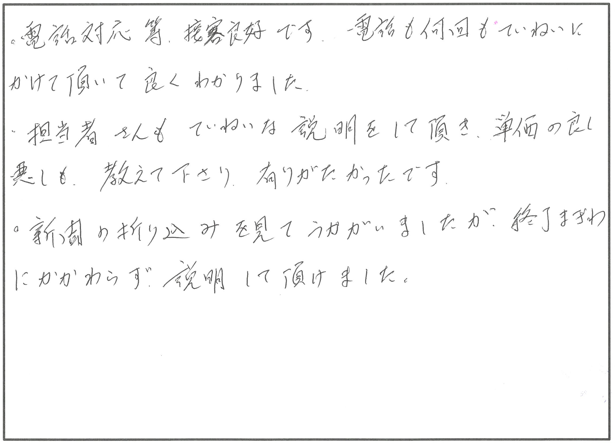 。電話対応等、接客良好です。電話も何回もていねいに
かけて頂いて良くわかりました。
・担当者さんもていねいな説明をして頂き、単価の良し
悪しも、教えて下さり、有りがたかったです。
。新聞の折り込みを見てうかがいましたが、終了まぎわ
にかかわらず、説明して頂けました。